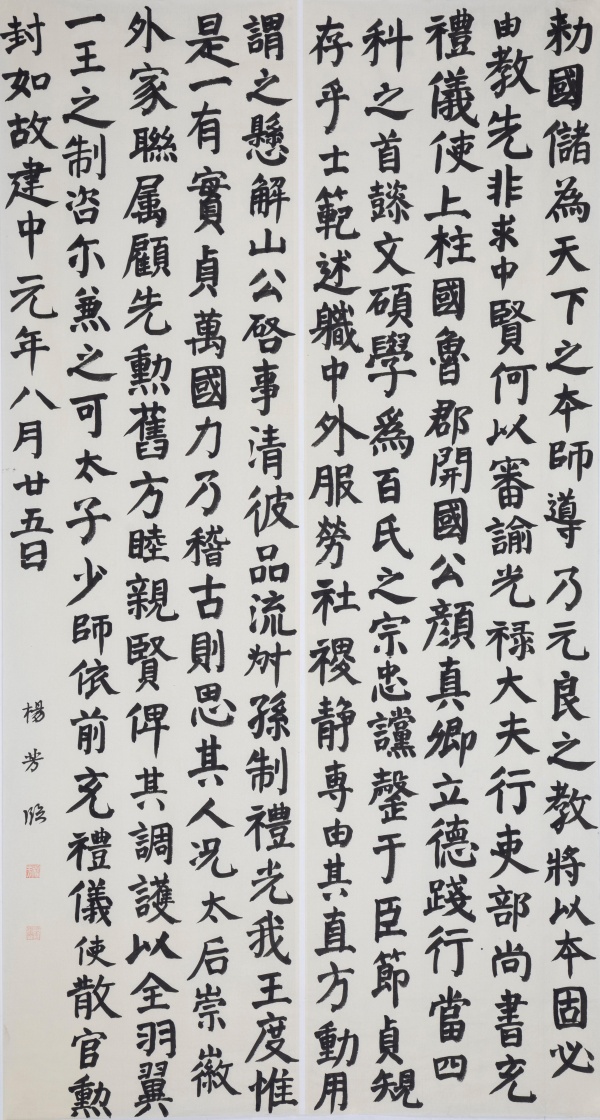 勅國儲為天下之本師導乃元良之教將以本固必
由教先非求中賢何以審諭光禄大夫行吏部尚書充
禮儀使上柱國魯郡開國公顔真卿立德踐行當四
科之首懿文碩學為百氏之宗忠讜罄于臣節貞規
存乎士範述職中外服勞社稷静専由其直方動用
謂之懸解山公啓事清彼品流叔孫制禮光我王度惟
是一有實貞萬國力乃稽古則思其人况太后崇徽
外家聯属顧先勳舊方睦親賢俾其調護以全羽翼
一王之制咨尔兼之可太子少師依前充禮儀使散官勲
封如故建中元年八月廿五日
楊芳臨